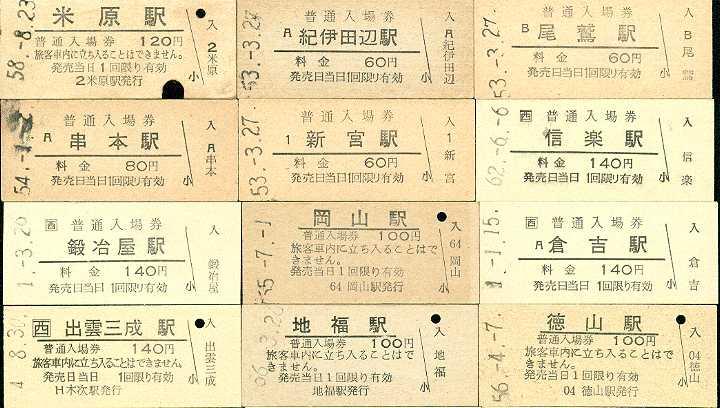 58.-8.23
米原駅
普通入場券 120円
旅客車内に立ち入ることはできません。
発売当日1回限り有効
2米原駅発行
入 2 米原
小
53.-3.27
普通入場券
A 紀伊田辺駅
料金 60円
発売日当日1回限り有効
入 A 紀伊田辺
小
53.-3.27.
普通入場券
B 尾鷲駅
料金 60円
発売日当日1回限り有効
入 B 尾鷲
小
54.-1.-2
普通入場券
A 串本駅
料金 80円
発売日当日1回限り有効
入 A 串本
小
53.-3.27.
普通入場券
1 新宮駅
料金 60円
発売日当日1回限り有効
入 1 新宮
小
62.-6.-6
西 普通入場券
信楽駅
料金 140円
発売日当日1回限り有効
入 信楽
小
1.-3.20
西 普通入場券
鍛冶屋駅
料金 140円
発売日当日1回限り有効
入 鍛冶屋
小
55.-7.-1
岡山駅
普通入場券 100円
旅客車内に立ち入ることはで
きません。
発売当日1回限り有効
64 岡山駅発行
入 64 岡山
小
-1.15.
西 普通入場券
A 倉吉駅
料金 140円
発売日当日1回限り有効
入 倉吉
小
4.-8.30
西 出雲三成駅
普通入場券 140円
旅客車内に立ち入ることはできません。
発売日当日 1回限り有効
H木次駅発行
入 出雲三成
小
地福駅
普通入場券 100円
旅客車内に立ち入ることはで
きません。
発売当日1回限り有効
地福駅発行
入 地福
小
56.-4.-7.
徳山駅
普通入場券 100円
旅客車内に立ち入ることはで
きません。
発売当日1回限り有効
04 徳山駅発行
入 04 徳山
小